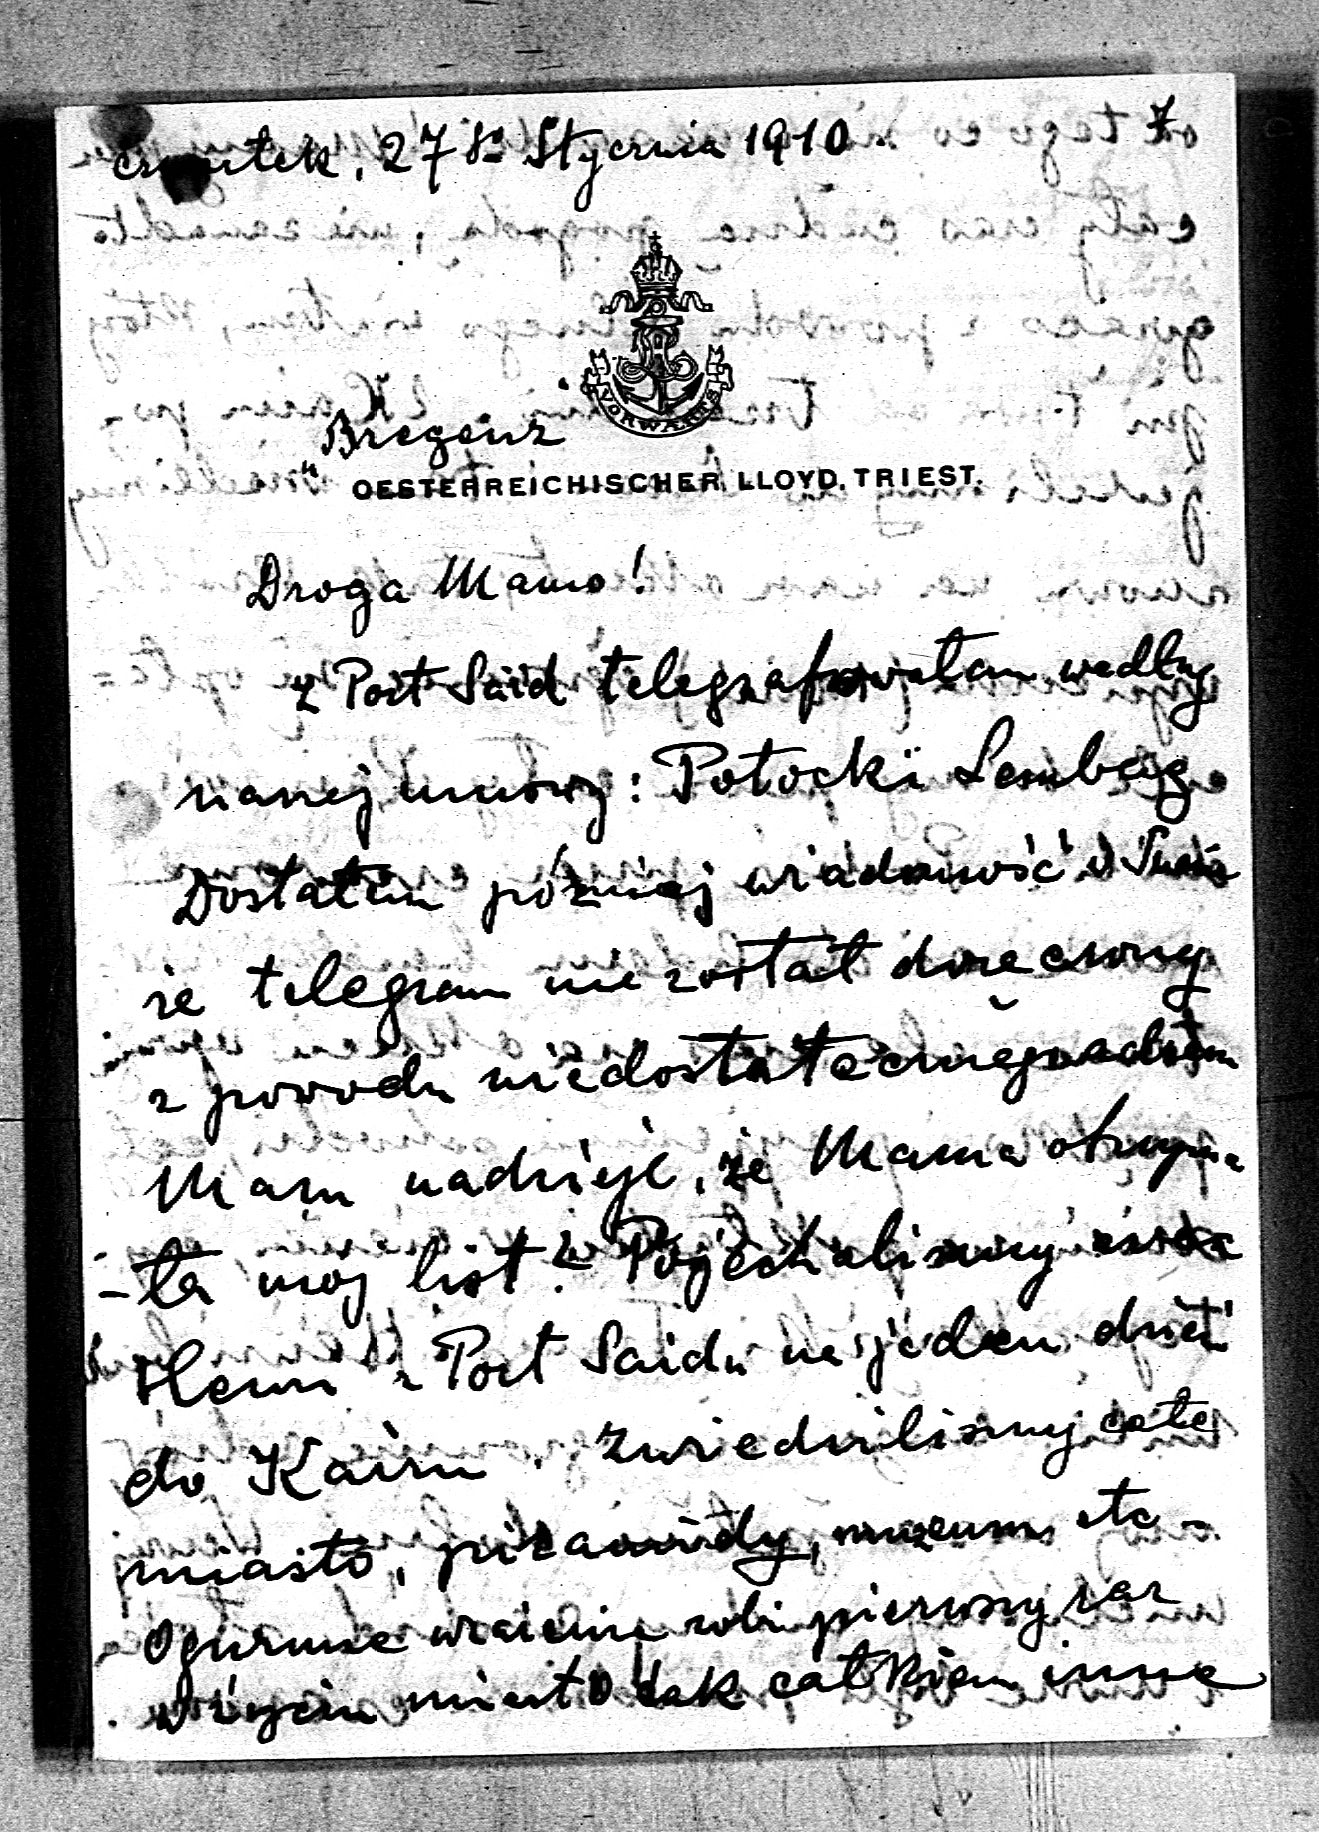 czwartek, 27go Stycznia 1910.
VORWÄRTS
"Bregenz"
OESTERREICHISCHER LLOYD, TRIEST.
Droga Mamo!
Z Port Said telegrafowałam według
naszej umowy: Potocki Lemberg.
Dostałam później wiadomość w Suezie
że telegram nie został doręczony
z powodu niedostatecznego adresu
Mam nadzieję, że Mama otrzyma
-ła mój list? Pojechaliśmy
z Port Saidu na jeden dzień
do Kairu. Zwiedziliśmy całe
miasto, piramidy, muzeum etc.
Ogromne wrażenie robi pierwszy raz
w życiu miasto tak całkiem inne